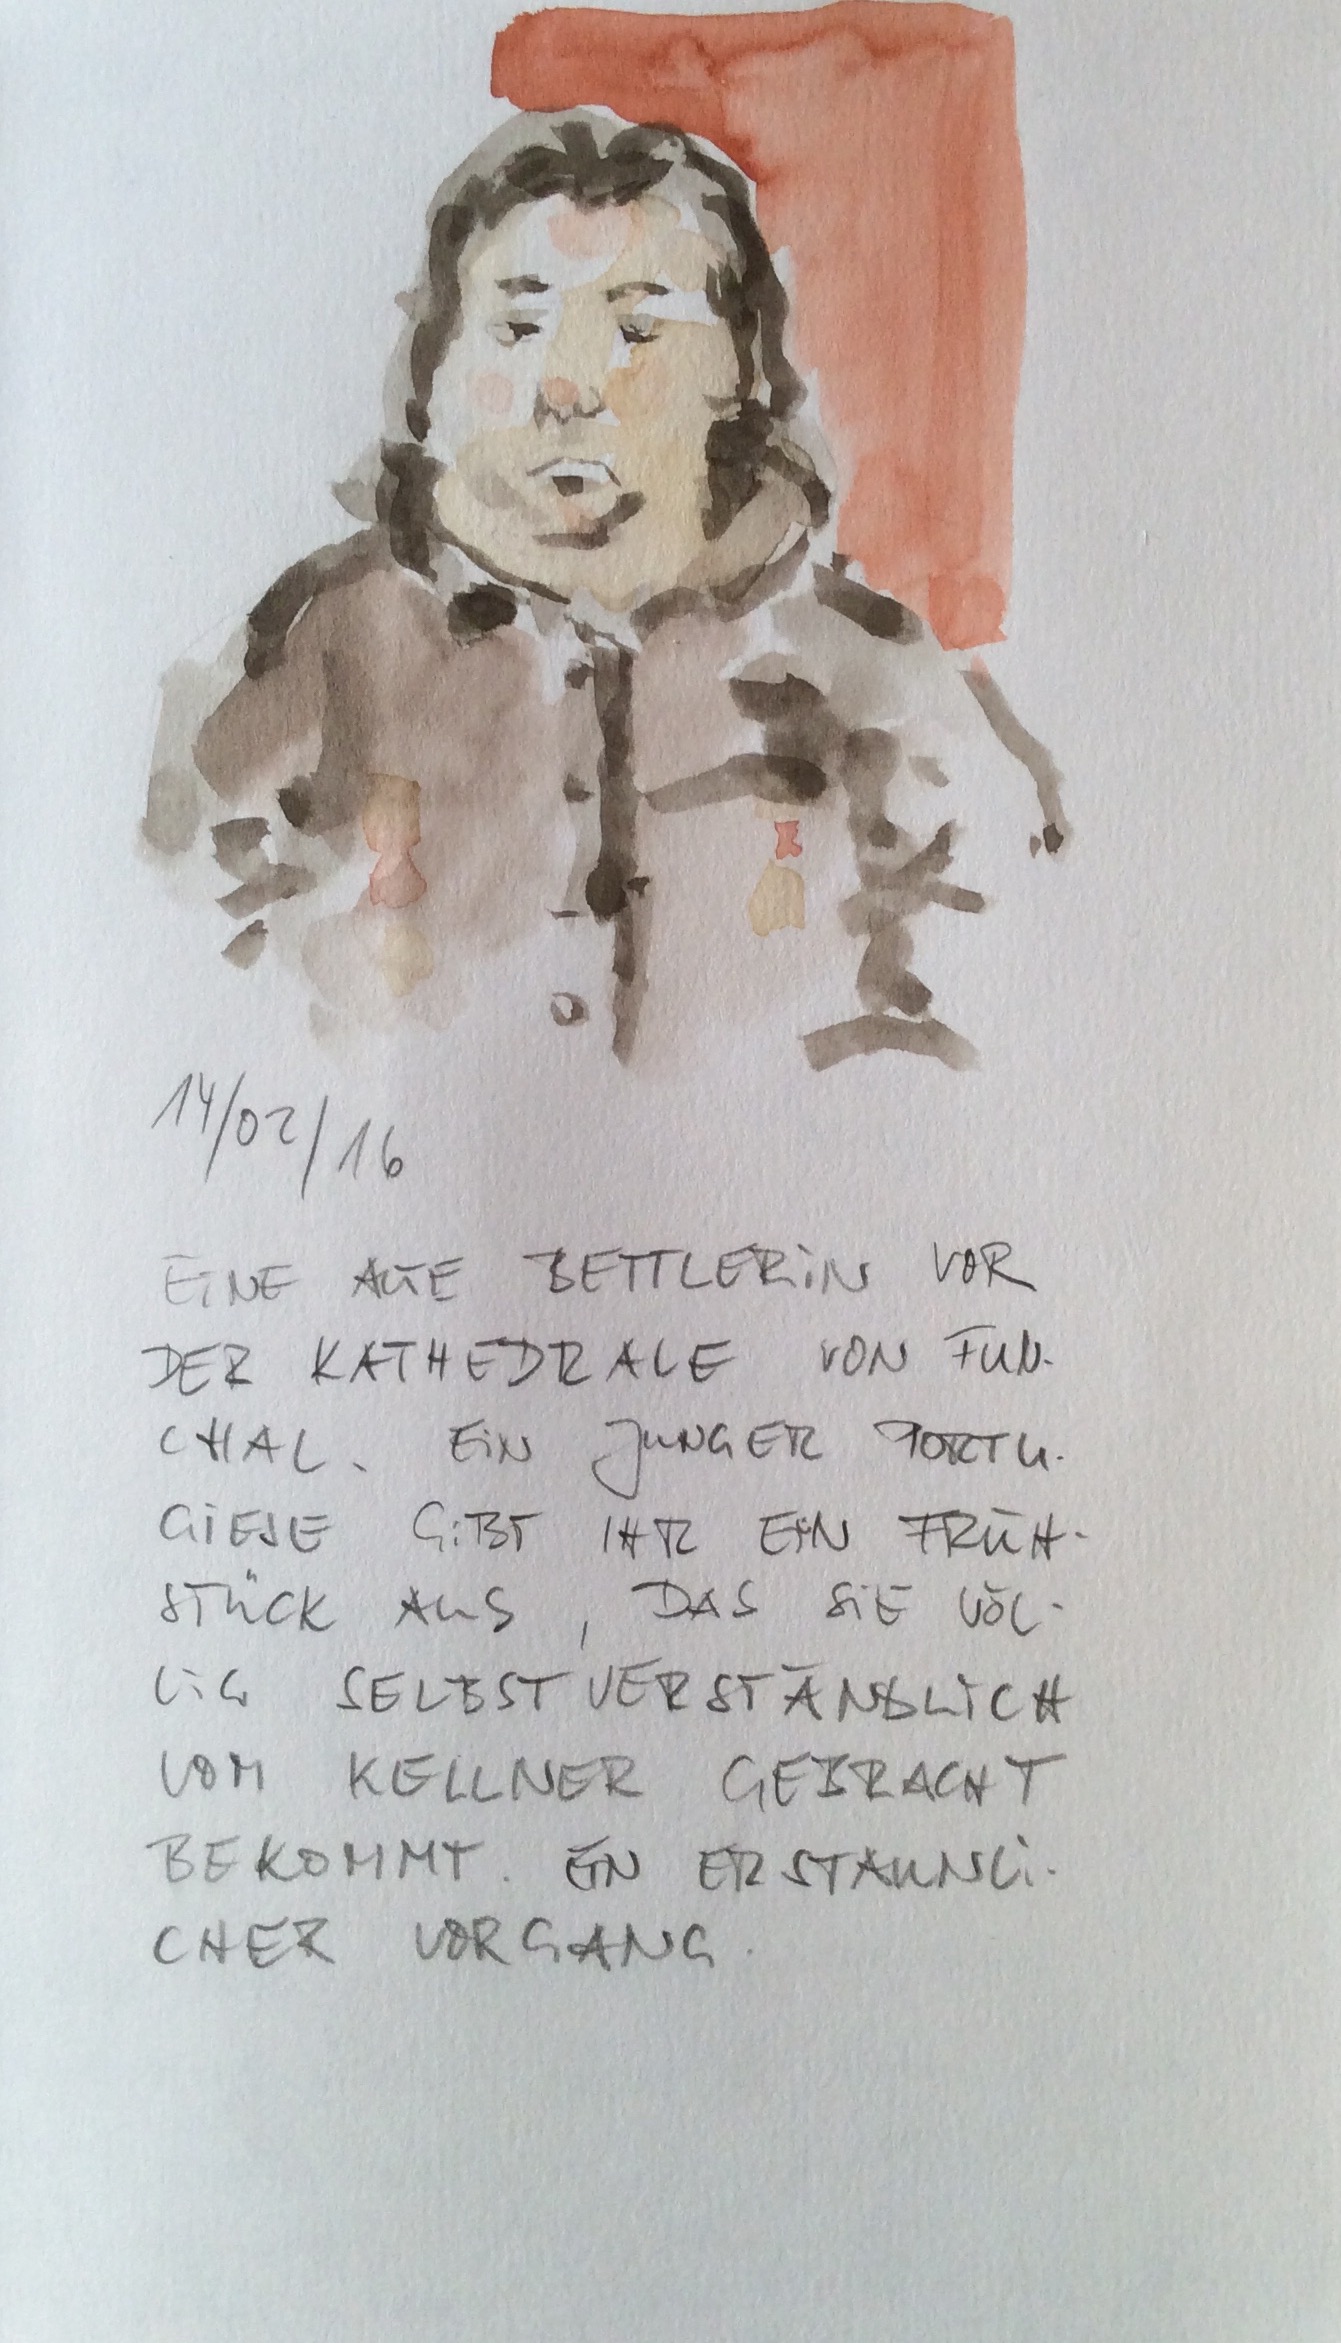 14/02/16
EINE ALTE BETTLERIN VOR
DER KATHEDRALE VON FUN-
CHAL. EIN JUNGER PORTU-
GIESE GIBT IHR EIN FRÜH-
STÜCK AUS, DAS SIE VÖL-
LIG SELBSTVERSTÄNDLICH
VOM KELLNER GEBRACHT
BEKOMMT. EIN ERSTAUNLI-
CHER VORGANG.